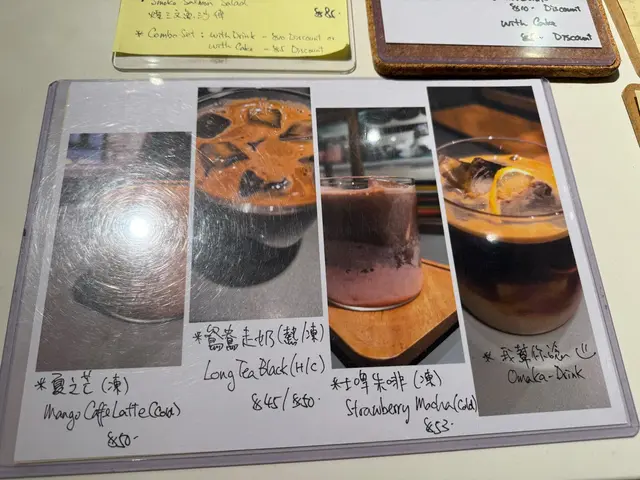 Smoke Salmon Salad
煙三文魚沙律 $85.-
* Combo Set : with Drink - $10 Discount or
with Cake - $5 Discount
$10.- Discount
with Cake
$5.- Discount
*夏之芒 (凍)
Mango Caffe Latte (Cold)
$50.-
*鴛鴦走奶 (熱/凍)
Long Tea Black (H/C)
$45/$50.-
*士啤朱啡 (凍)
Strawberry Mocha (Cold)
$53.-
* 我幫你
Omaka-Drink